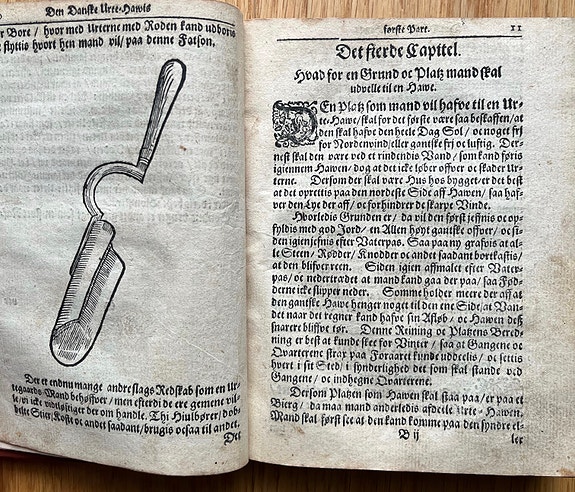 Den Danske Urte-Hawis
r Bore / hvor med Urterne med Roden kand udboris
slyttis hvort hen mand vil / paa denne Fatson.
Der er endnu mange andre slags Redskab som en Ur-
tegaards Mand behøffver / men efterdi de ere gemene vil-
le / vi icke vidtløftiger der om handle. Thi Hiulbører / dob-
belte Stier, Koste oc andet saadant / brugis ocsaa til andet.
Det
første Part.
11
Det fierde Capitel.
Hvad for en Grund oc Platz mand skal
udvelle til en Hawe.
DEn Platz som mand vil hafve til en Ur-
te-Hawe / skal for det første være saa beskaffen / at
den skal hafve den heele Dag Sol / oc noget fri
for Nordenvind / eller gantske fri oc luftig. Der-
nest skal den være ved et rindendis Vand / som kand føris
igiennem Hawen / dog at det icke løber offver oc skader Ur-
terne. Dersom der skal være Hus hos bygget / er det best
at det oprettis paa den nordeste Side aff Hawen / saa haf-
ver den Lye der aff / oc forhindrer de skarpe Vinde.
Hvorledis Grunden er / da vil den først jeffnis oc op-
fyldis med god Jord / en Allen høyt gantske offver / oc si-
den igien jefnis efter Vaterpas. Saa paa ny grafvis at al-
le Steen / Rødder / Knodder oc andet saadant bortkastis /
at den blifver reen. Siden igien affmalet efter Vater-
pas / oc nedertrædet at mand kand gaa der paa / saa Fød-
derne icke slipper neder. Somme holder meere der aff at
den gantske Hawe henger noget til den ene Side / at Van-
det naar det regner kand hafve sin Afløb / oc Hawen deß
snarere bliffve tør. Denne Reining oc Platzens Bered-
ning er best at kunde skee for Vinter / saa at Gangene oc
Qvarterene strax paa Foraaret kunde uddeelis / oc settis
hvert i sit Sted / i synderlighed det som skal staande ved
Gangene / oc indhegne Qvarterene.
Dersom Platzen som Hawen skal staa paa / er paa et
Bierg / da maa mand anderledis afdeele Urte-Hawen.
Mand skal først see at den kand komme paa den syndre el-
B ij
ler